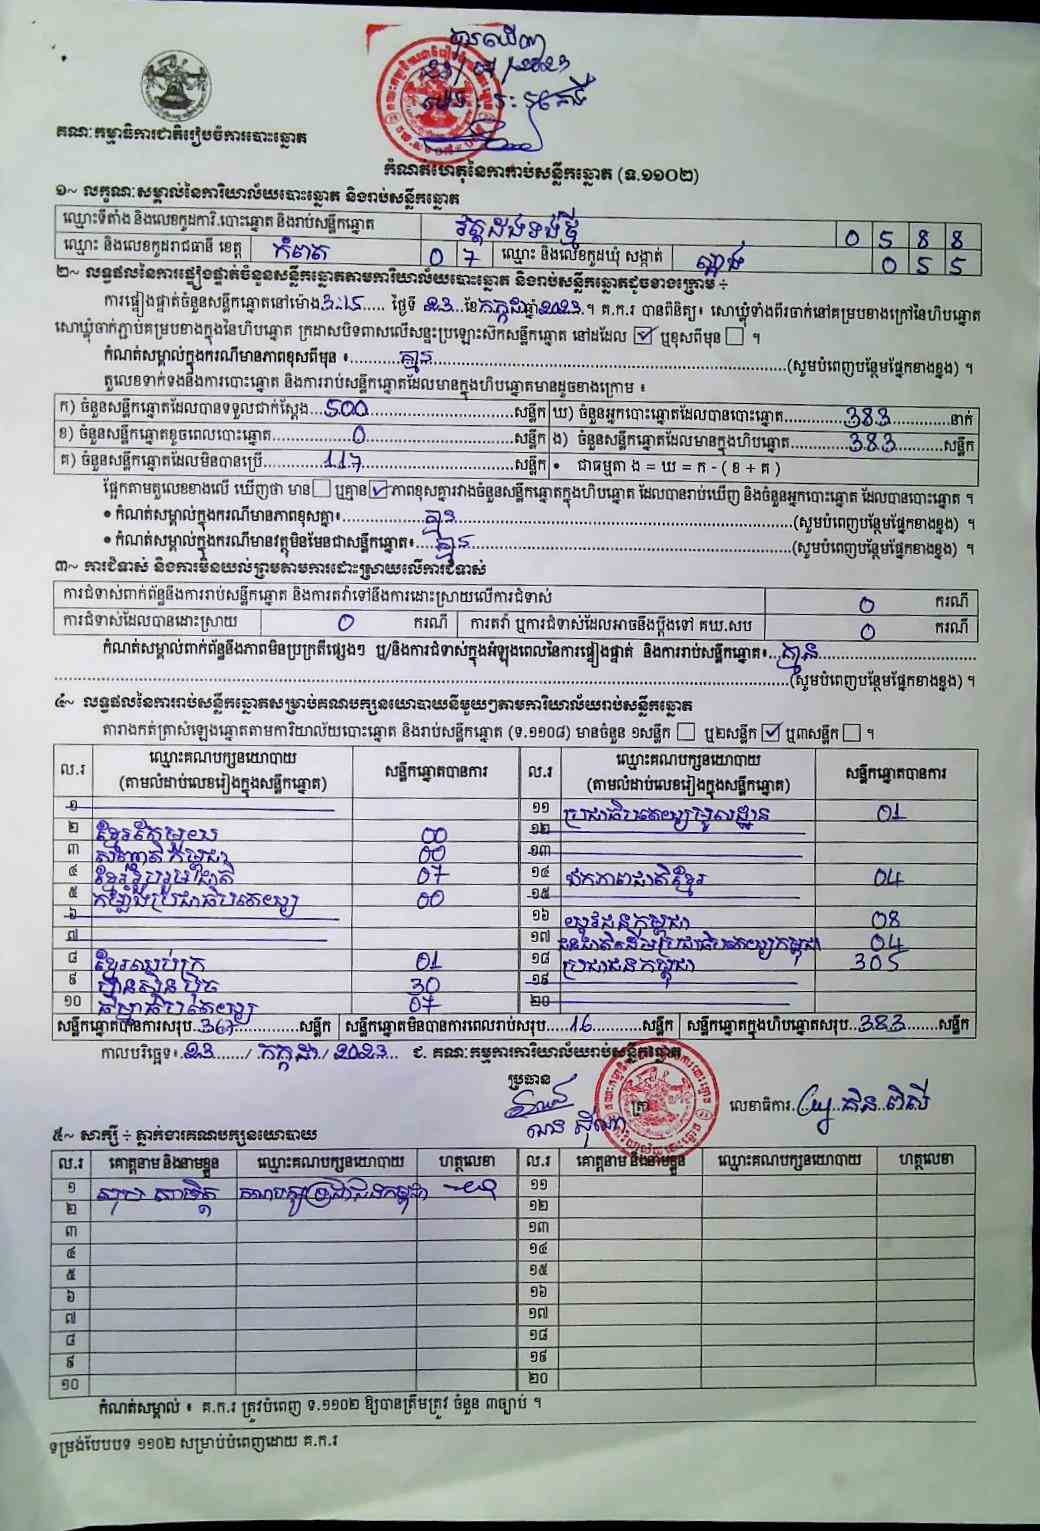 បានឃើញ
គណៈកម្មាធិការជាតិរៀបចំការបោះឆ្នោត
កំណត់ហេតុនៃការរាប់សន្លឹកឆ្នោត (ទ.១១០២)
១~ លក្ខណៈសម្គាល់នៃការិយាល័យបោះឆ្នោត និងរាប់សន្លឹកឆ្នោត
ឈ្មោះទីតាំង និងលេខកូដការិ.បោះឆ្នោត និងរាប់សន្លឹកឆ្នោត 0 5 8 8
ឈ្មោះ និងលេខកូដរាជធានី ខេត្ត កំពត 0 7 ឈ្មោះ និងលេខកូដឃុំ សង្កាត់ 0 5 5
២~ លទ្ធផលនៃការផ្ទៀងផ្ទាត់ចំនួនសន្លឹកឆ្នោតតាមការិយាល័យបោះឆ្នោត និងរាប់សន្លឹកឆ្នោតដូចខាងក្រោម ÷
ការផ្ទៀងផ្ទាត់ចំនួនសន្លឹកឆ្នោតនៅម៉ោង 3:15 ថ្ងៃទី 23 ខែ កក្កដា ឆ្នាំ 2023 ។ គ.ក.រ បានពិនិត្យ៖ សោឃ្លុំទាំងពីរចាក់នៅគម្របខាងក្រៅនៃហិបឆ្នោត
សោឃ្លុំចាក់ភ្ជាប់គម្របខាងក្នុងនៃហិបឆ្នោត ក្រដាសបិទពាសលើសន្ទះប្រឡោះស៊កសន្លឹកឆ្នោត នៅដដែល ✓ ឬខុសពីមុន ។
កំណត់សម្គាល់ក្នុងករណីមានភាពខុសពីមុន ៖ គ្មាន (សូមបំពេញបន្ថែមផ្នែកខាងខ្នង) ។
តួលេខទាក់ទងនឹងការបោះឆ្នោត និងការរាប់សន្លឹកឆ្នោតដែលមានក្នុងហិបឆ្នោតមានដូចខាងក្រោម ៖
ក) ចំនួនសន្លឹកឆ្នោតដែលបានទទួលជាក់ស្តែង 500 សន្លឹក ឃ) ចំនួនអ្នកបោះឆ្នោតដែលបានបោះឆ្នោត 383 នាក់
ខ) ចំនួនសន្លឹកឆ្នោតខូចពេលបោះឆ្នោត 0 សន្លឹក ង) ចំនួនសន្លឹកឆ្នោតដែលមានក្នុងហិបឆ្នោត 383 សន្លឹក
គ) ចំនួនសន្លឹកឆ្នោតដែលមិនបានប្រើ 117 សន្លឹក • ជាធម្មតា ង = ឃ = ក - ( ខ + គ )
ផ្អែកតាមតួលេខខាងលើ ឃើញថា មាន ឬគ្មាន ✓ ភាពខុសគ្នារវាងចំនួនសន្លឹកឆ្នោតក្នុងហិបឆ្នោត ដែលបានរាប់ឃើញ និងចំនួនអ្នកបោះឆ្នោត ដែលបានបោះឆ្នោត ។
• កំណត់សម្គាល់ក្នុងករណីមានភាពខុសគ្នា៖ គ្មាន (សូមបំពេញបន្ថែមផ្នែកខាងខ្នង) ។
• កំណត់សម្គាល់ក្នុងករណីមានវត្ថុមិនមែនជាសន្លឹកឆ្នោត៖ គ្មាន (សូមបំពេញបន្ថែមផ្នែកខាងខ្នង) ។
៣~ ការជំទាស់ និងការមិនយល់ព្រមតាមការដោះស្រាយលើការជំទាស់
ការជំទាស់ពាក់ព័ន្ធនឹងការរាប់សន្លឹកឆ្នោត និងការតវ៉ាទៅនឹងការដោះស្រាយលើការជំទាស់ 0 ករណី
ការជំទាស់ដែលបានដោះស្រាយ 0 ករណី ការតវ៉ា ឬការជំទាស់ដែលអាចនឹងប្តឹងទៅ គឃ.សប 0 ករណី
កំណត់សម្គាល់ពាក់ព័ន្ធនឹងភាពមិនប្រក្រតីផ្សេងៗ ឬ/និងការជំទាស់ក្នុងអំឡុងពេលនៃការផ្ទៀងផ្ទាត់ និងការរាប់សន្លឹកឆ្នោត៖ គ្មាន
(សូមបំពេញបន្ថែមផ្នែកខាងខ្នង) ។
៤~ លទ្ធផលនៃការរាប់សន្លឹកឆ្នោតសម្រាប់គណបក្សនយោបាយនីមួយៗតាមការិយាល័យរាប់សន្លឹកឆ្នោត
តារាងកត់ត្រាសំឡេងឆ្នោតតាមការិយាល័យបោះឆ្នោត និងរាប់សន្លឹកឆ្នោត (ទ.១១០៨) មានចំនួន ១សន្លឹក ឬ២សន្លឹក ✓ ឬ៣សន្លឹក ។
ល.រ ឈ្មោះគណបក្សនយោបាយ (តាមលំដាប់លេខរៀងក្នុងសន្លឹកឆ្នោត) សន្លឹកឆ្នោតបានការ ល.រ ឈ្មោះគណបក្សនយោបាយ (តាមលំដាប់លេខរៀងក្នុងសន្លឹកឆ្នោត) សន្លឹកឆ្នោតបានការ
១ ១១ ប្រជាធិបតេយ្យមូលដ្ឋាន 01
២ ខ្មែរតែមួយ 00 ១២
៣ សញ្ជាតិកម្ពុជា 00 ១៣
៤ ខ្មែររួបរួមជាតិ 07 ១៤ ឯកភាពជាតិខ្មែរ 04
៥ កម្លាំងប្រជាធិបតេយ្យ 00 ១៥
៦ ១៦ យុវជនកម្ពុជា 08
៧ ១៧ ជនជាតិដើមប្រជាធិបតេយ្យកម្ពុជា 04
៨ ខ្មែរឈប់ក្រ 01 ១៨ ប្រជាជនកម្ពុជា 305
៩ ហ៊្វុនស៊ិនប៉ិច 30 ១៩
១០ ធម្មាធិបតេយ្យ 07 ២០
សន្លឹកឆ្នោតបានការសរុប 367 សន្លឹក សន្លឹកឆ្នោតមិនបានការពេលរាប់សរុប 16 សន្លឹក សន្លឹកឆ្នោតក្នុងហិបឆ្នោតសរុប 383 សន្លឹក
កាលបរិច្ឆេទ៖ 23 / កក្កដា / 2023 ជ. គណៈកម្មការការិយាល័យរាប់សន្លឹកឆ្នោត
ប្រធាន
ត្រា លេខាធិការ
៥~ សាក្សី ÷ ភ្នាក់ងារគណបក្សនយោបាយ
ល.រ គោត្តនាម និងនាមខ្លួន ឈ្មោះគណបក្សនយោបាយ ហត្ថលេខា ល.រ គោត្តនាម និងនាមខ្លួន ឈ្មោះគណបក្សនយោបាយ ហត្ថលេខា
១ គណបក្សប្រជាជនកម្ពុជា ១១
២ ១២
៣ ១៣
៤ ១៤
៥ ១៥
៦ ១៦
៧ ១៧
៨ ១៨
៩ ១៩
១០ ២០
កំណត់សម្គាល់ ៖ គ.ក.រ ត្រូវបំពេញ ទ.១១០២ ឱ្យបានត្រឹមត្រូវ ចំនួន ៣ច្បាប់ ។
ទម្រង់បែបបទ ១១០២ សម្រាប់បំពេញដោយ គ.ក.រ